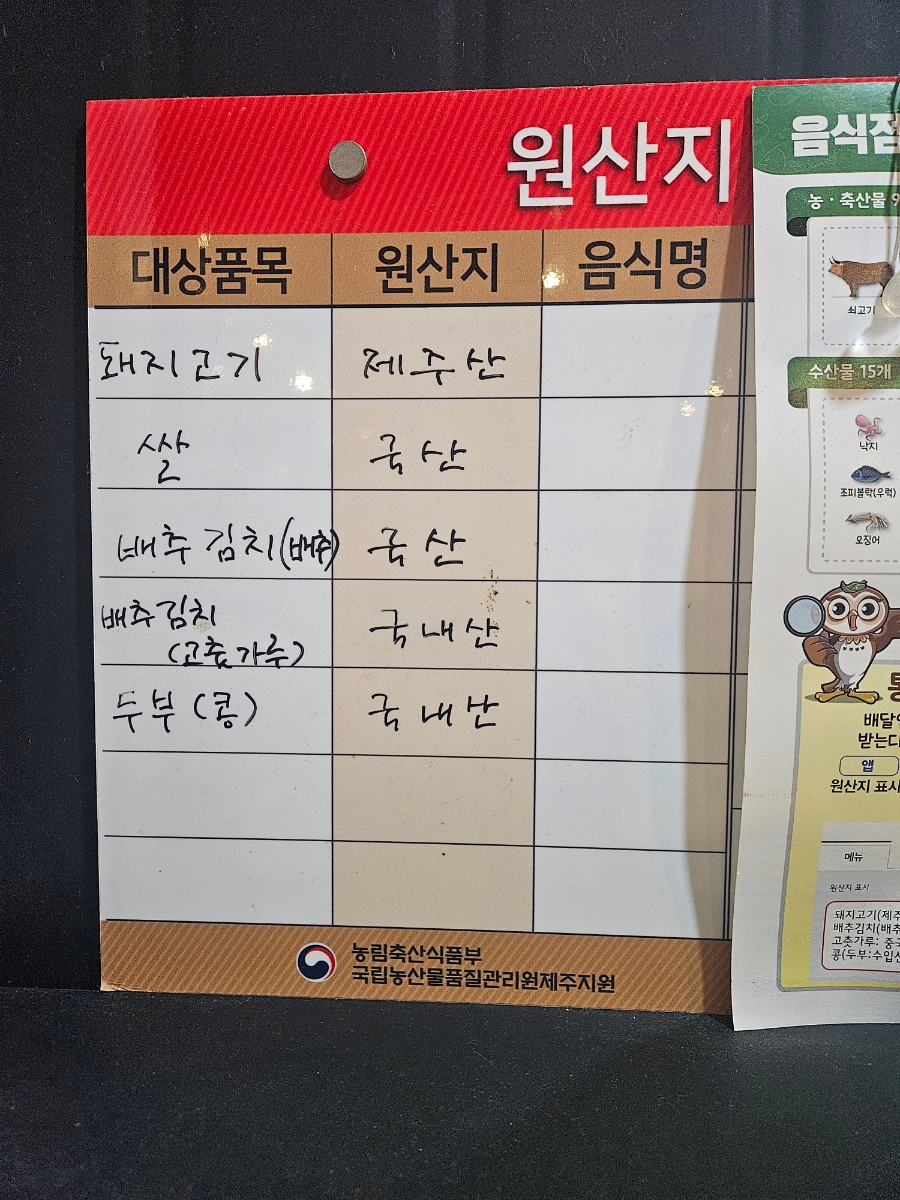 원산지
대상품목 원산지 음식명
돼지고기 제주산
쌀 국산
배추김치(배추) 국산
배추김치
(고춧가루) 국내산
두부(콩) 국내산
농림축산식품부
국립농산물품질관리원제주지원
음식점
농·축산물 9
쇠고기
수산물 15개
낙지
조피볼락(우럭)
오징어
통
배달
받는다
앱
원산지 표시
메뉴
원산지 표시
돼지고기(제주
배추김치(배추
고춧가루: 중국
콩(두부:수입산